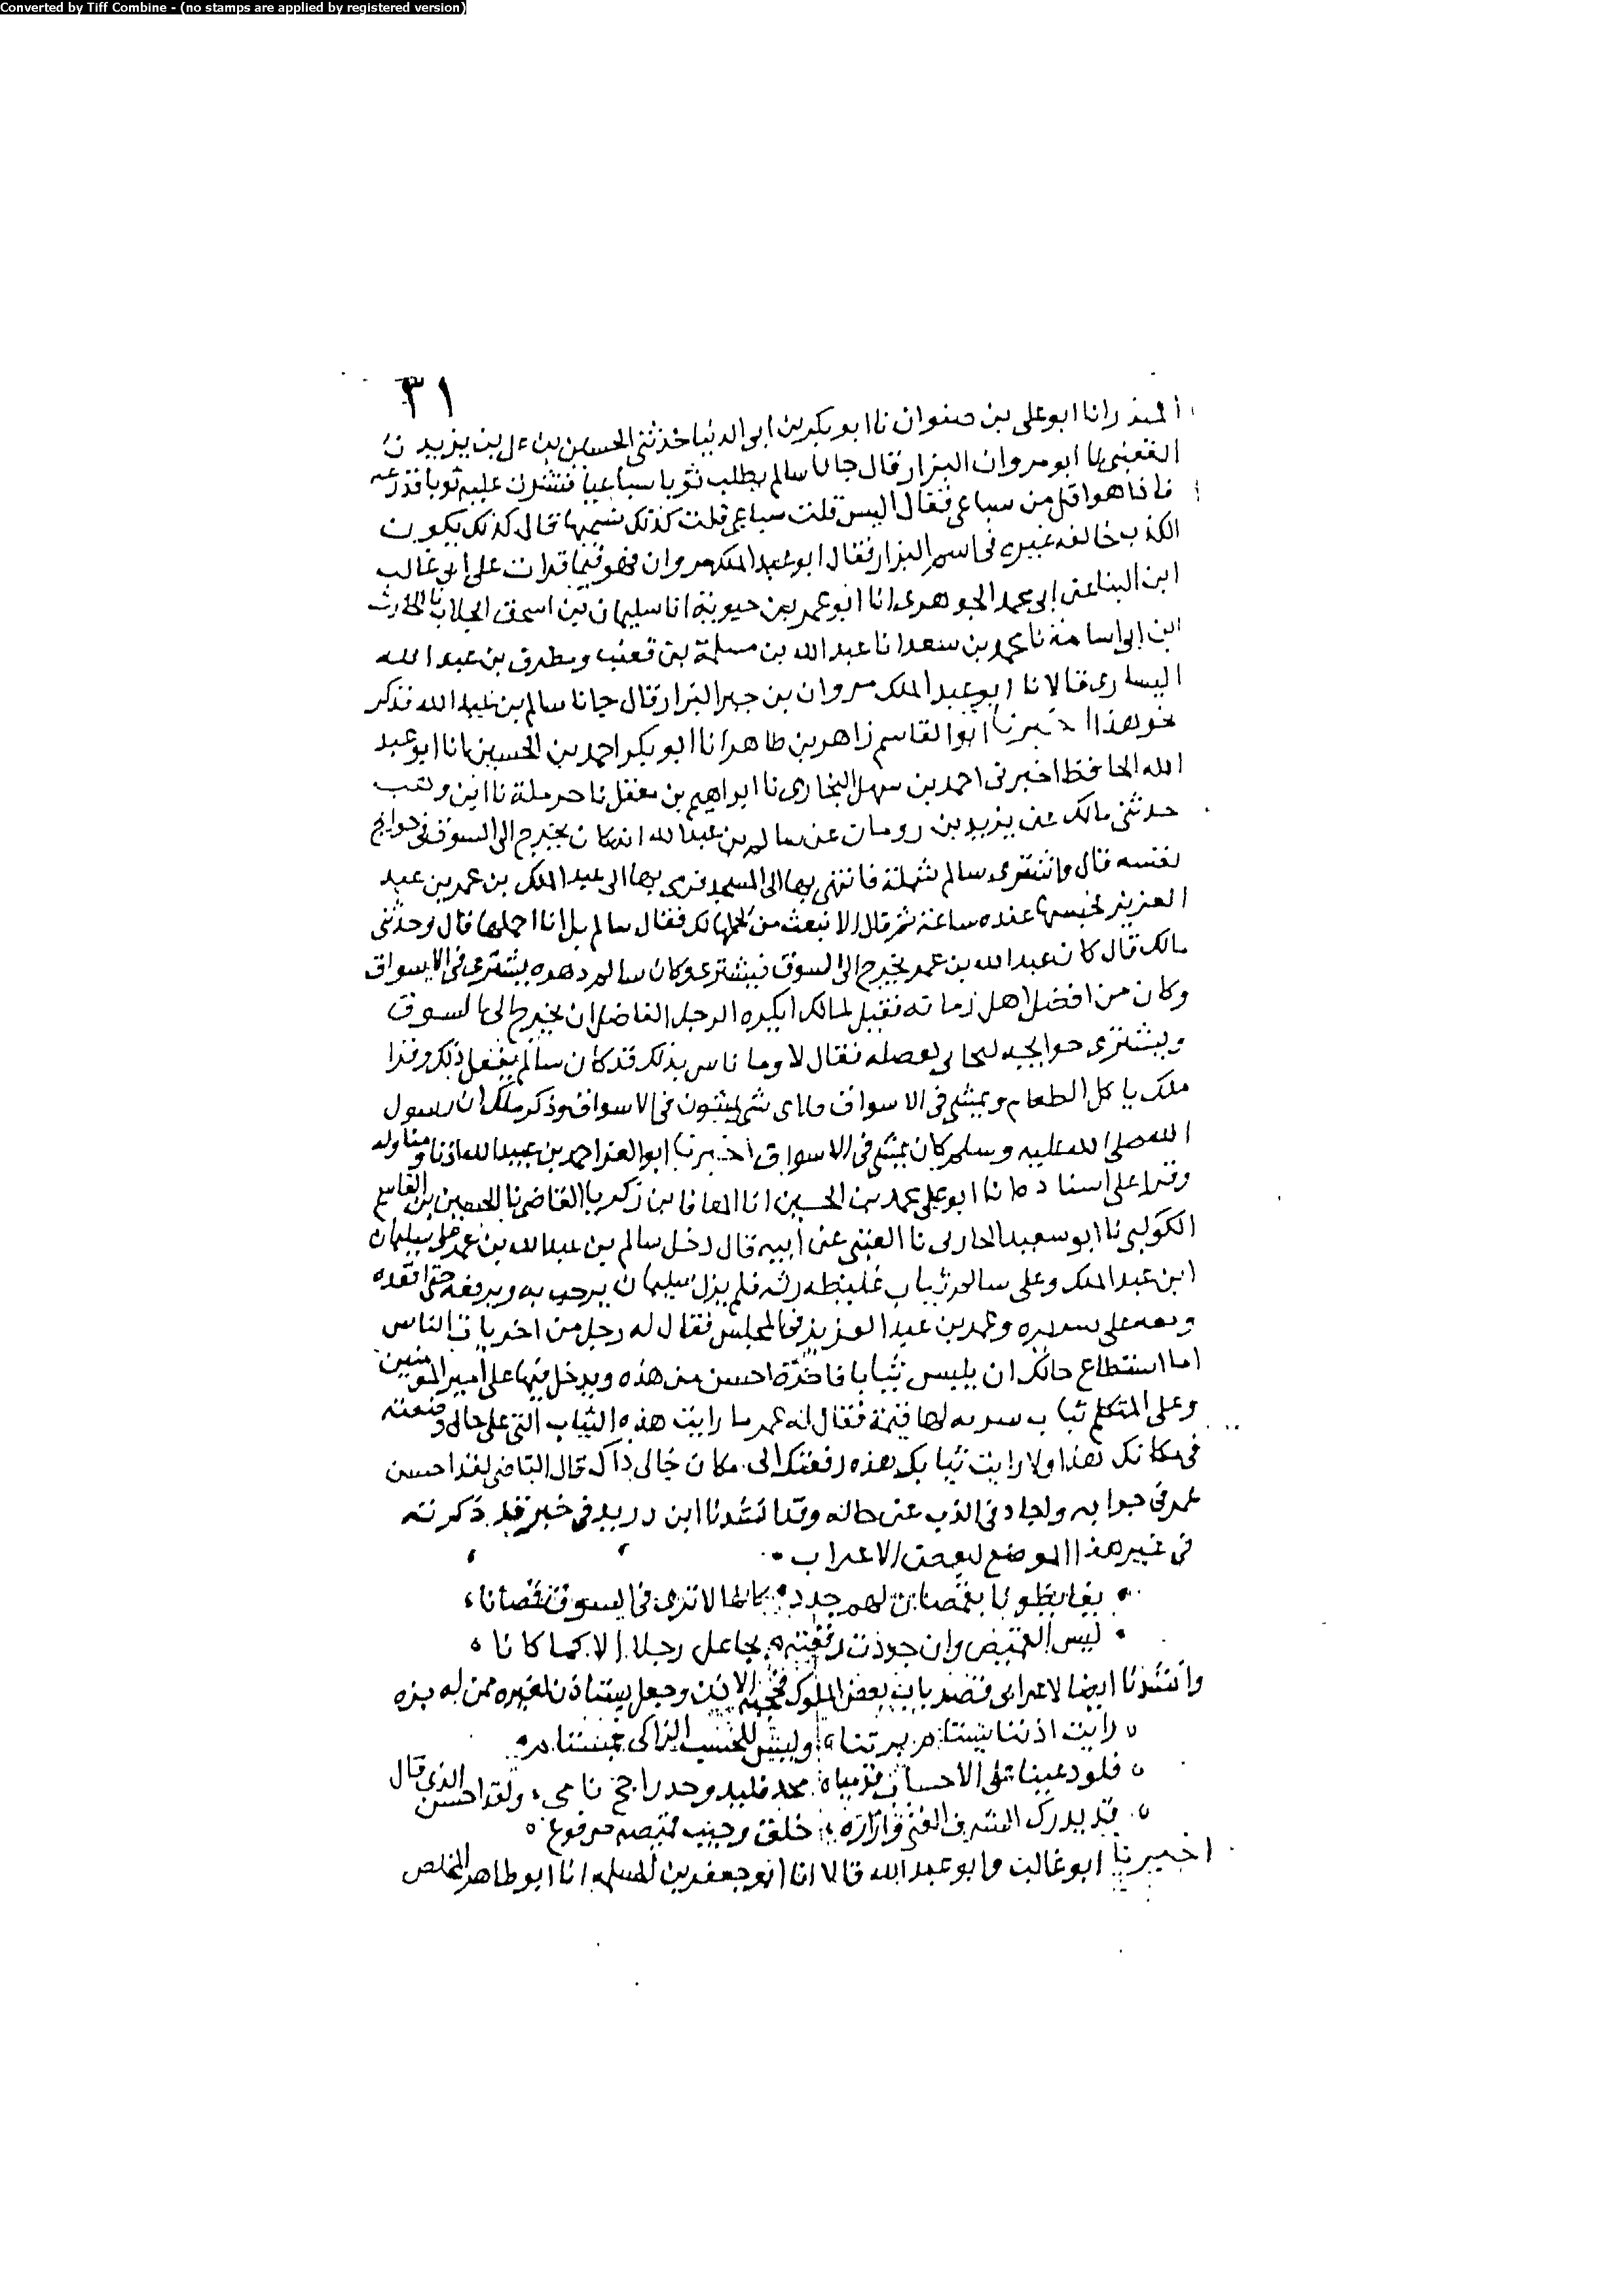 Converted by Tiff Combine - (no stamps are applied by registered version)
٣١
انا ابو على بن صفوان نا ابو بكر بن ابى الدنيا حدثنى الحسين بن على بن يزيد نا
القعنبى نا ابو مروان البزار قال جانا سالم يطلب ثوبا سباعيا فنشرت عليه ثوبا فذرعه
فاذا هو اقل من سباعى فقال اليس قلت سباعى قلت كذلك نسميها قال كذلك يكون
الكذب خالفه غيره فى اسم البزار فقال ابو عبد الملك مروان فهو فيما قرات على ابى غالب
ابن البنا عن ابى محمد الجوهرى انا ابو عمر بن حيوية انا سليمان بن اسحق الجلاب نا الحارث
ابن ابى اسامة نا محمد بن سعد انا عبد الله بن مسلمة بن قعنب ومطرف بن عبد الله
اليسارى قالا نا ابو عبد الملك مروان بن البزار قال جانا سالم بن عبد الله فذكر
نحو هذا اخبرنا ابو القاسم زاهر بن طاهر انا ابو بكر احمد بن الحسين انا ابو عبد
الله الحافظ اخبرنى احمد بن سهل البخارى نا ابراهيم بن معقل نا حرملة نا ابن وهب
حدثنى مالك عن يزيد بن رومان عن سالم بن عبد الله انه كان يخرج الى السوق فى حوايج
نفسه قال واشترى سالم شملة فانتهى بها الى المسجد فرمى بها الى عبد الملك بن عمر بن عبد
العزيز فحبسها عنده ساعة ثم قال الا نبعث من يحملها لك فقال سالم بل انا احملها قال وحدثنى
مالك قال كان عبد الله بن عمر يخرج الى السوق فيشترى وكان سالم دهره يشترى فى الاسواق
وكان من افضل اهل زمانه فقيل لمالك ايكره الرجل الفاضل ان يخرج الى السوق
ويشترى حوايجه فقال لا وما باس بذلك قد كان سالم يفعل ذلك وقرا
ملك ياكل الطعام ويمشى فى الاسواق ولاى شى يمشون فى الاسواق وذكر ملك ان رسول
الله صلى الله عليه وسلم كان يمشى فى الاسواق اخبرنا ابو العز احمد بن عبيد الله اذنا ومناوله
وقرا على اسناده انا ابو على محمد بن الحسين انا المعافا بن زكريا القاضى نا الحسين بن القاسم
الكوكبى نا ابو سعيد الحارثى نا العتبى عن أبيه قال دخل سالم بن عبد الله بن عمر على سليمان
ابن عبد الملك وعلى سالم ثياب غليظه رثه فلم يزل سليمان يرحب به ويرفعه حتى اقعده
معه على سريره وعمر بن عبد العزيز فى المجلس فقال له رجل من اخريات الناس
اما استطاع خالك ان يلبس ثيابا فاخرة احسن من هذه ويدخل فيها على أمير المومنين
وعلى المتكلم ثياب سريه لها قيمة فقال له عمر ما رايت هذه الثياب التى على خالى وضعته
فى مكانك هذا ولا رايت ثيابك هذه رفعتك الى مكان خالى ذاك قال القاضى لقد احسن
عمر فى جوابه واجاد فى الذب عن خاله وقد انشدنا ابن دريد فى خبر قد ذكرته
فى غير هذا الموضع لبعض الاعراب
يغايظونا بقمصان لهم جدد كاننا لا نرى فى السوق قمصانا
ليس القميص وان جودت رقعته بجاعل رجلا الا كما كانا
وانشدنا ايضا لاعرابى قصد باب بعض الملوك فحجبه الاذن وجعل يستاذن لغيره ممن له بزه
رايت اذننا يعتام بزتنا وليس للحسب الزاكى بمعتام
فلو دعينا على الاحساب قدمنا مجد تليد وجد راجح نامى ولقد احسن الذى قال
قد يدرك الشرف الفتى وازاره خلق وجيب قميصه مرقوع
اخبرنا ابو غالب وابو عبد الله قالا انا ابو جعفر بن المسلمه انا ابو طاهر المخلص